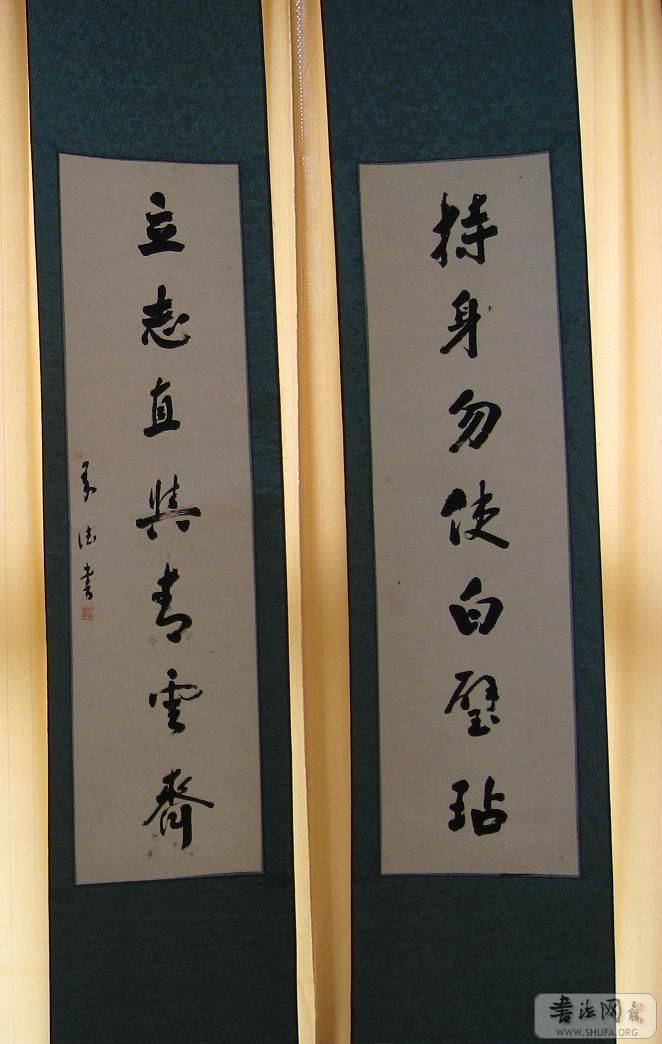 持身勿使白璧玷
立志直與青雲齊
書法网
WWW.SHUFA.ORG